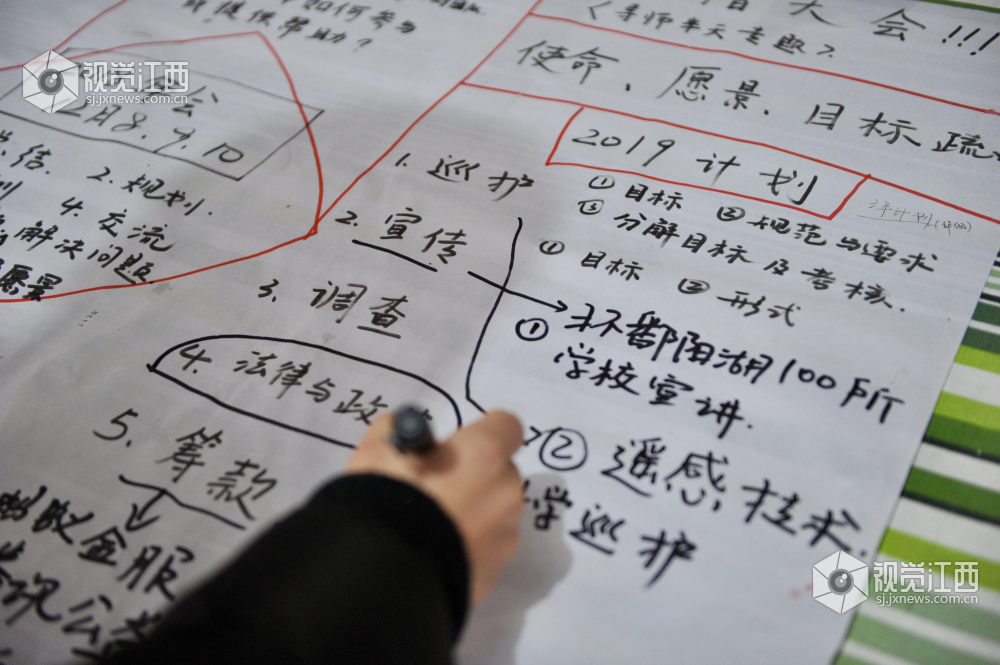 如何参与
或提供帮助？
视觉江西
sj.jxnews.com.cn
公
2月8.9.10
总结. 2.规划.
4.交流
解决问题
愿景
大会!!!
使命、愿景、目标疏
2019 计划
3年计划
①目标 ②规范与要求
分解目标及考核.
①目标 ②形式
1.巡护
2.宣传
3.调查
4.法律与政
5.筹款
蚂蚁金服
讯公
①环鄱阳湖100所
学校宣讲.
②遥感技术.
学巡护
视觉江西
sj.jxnews.com.cn